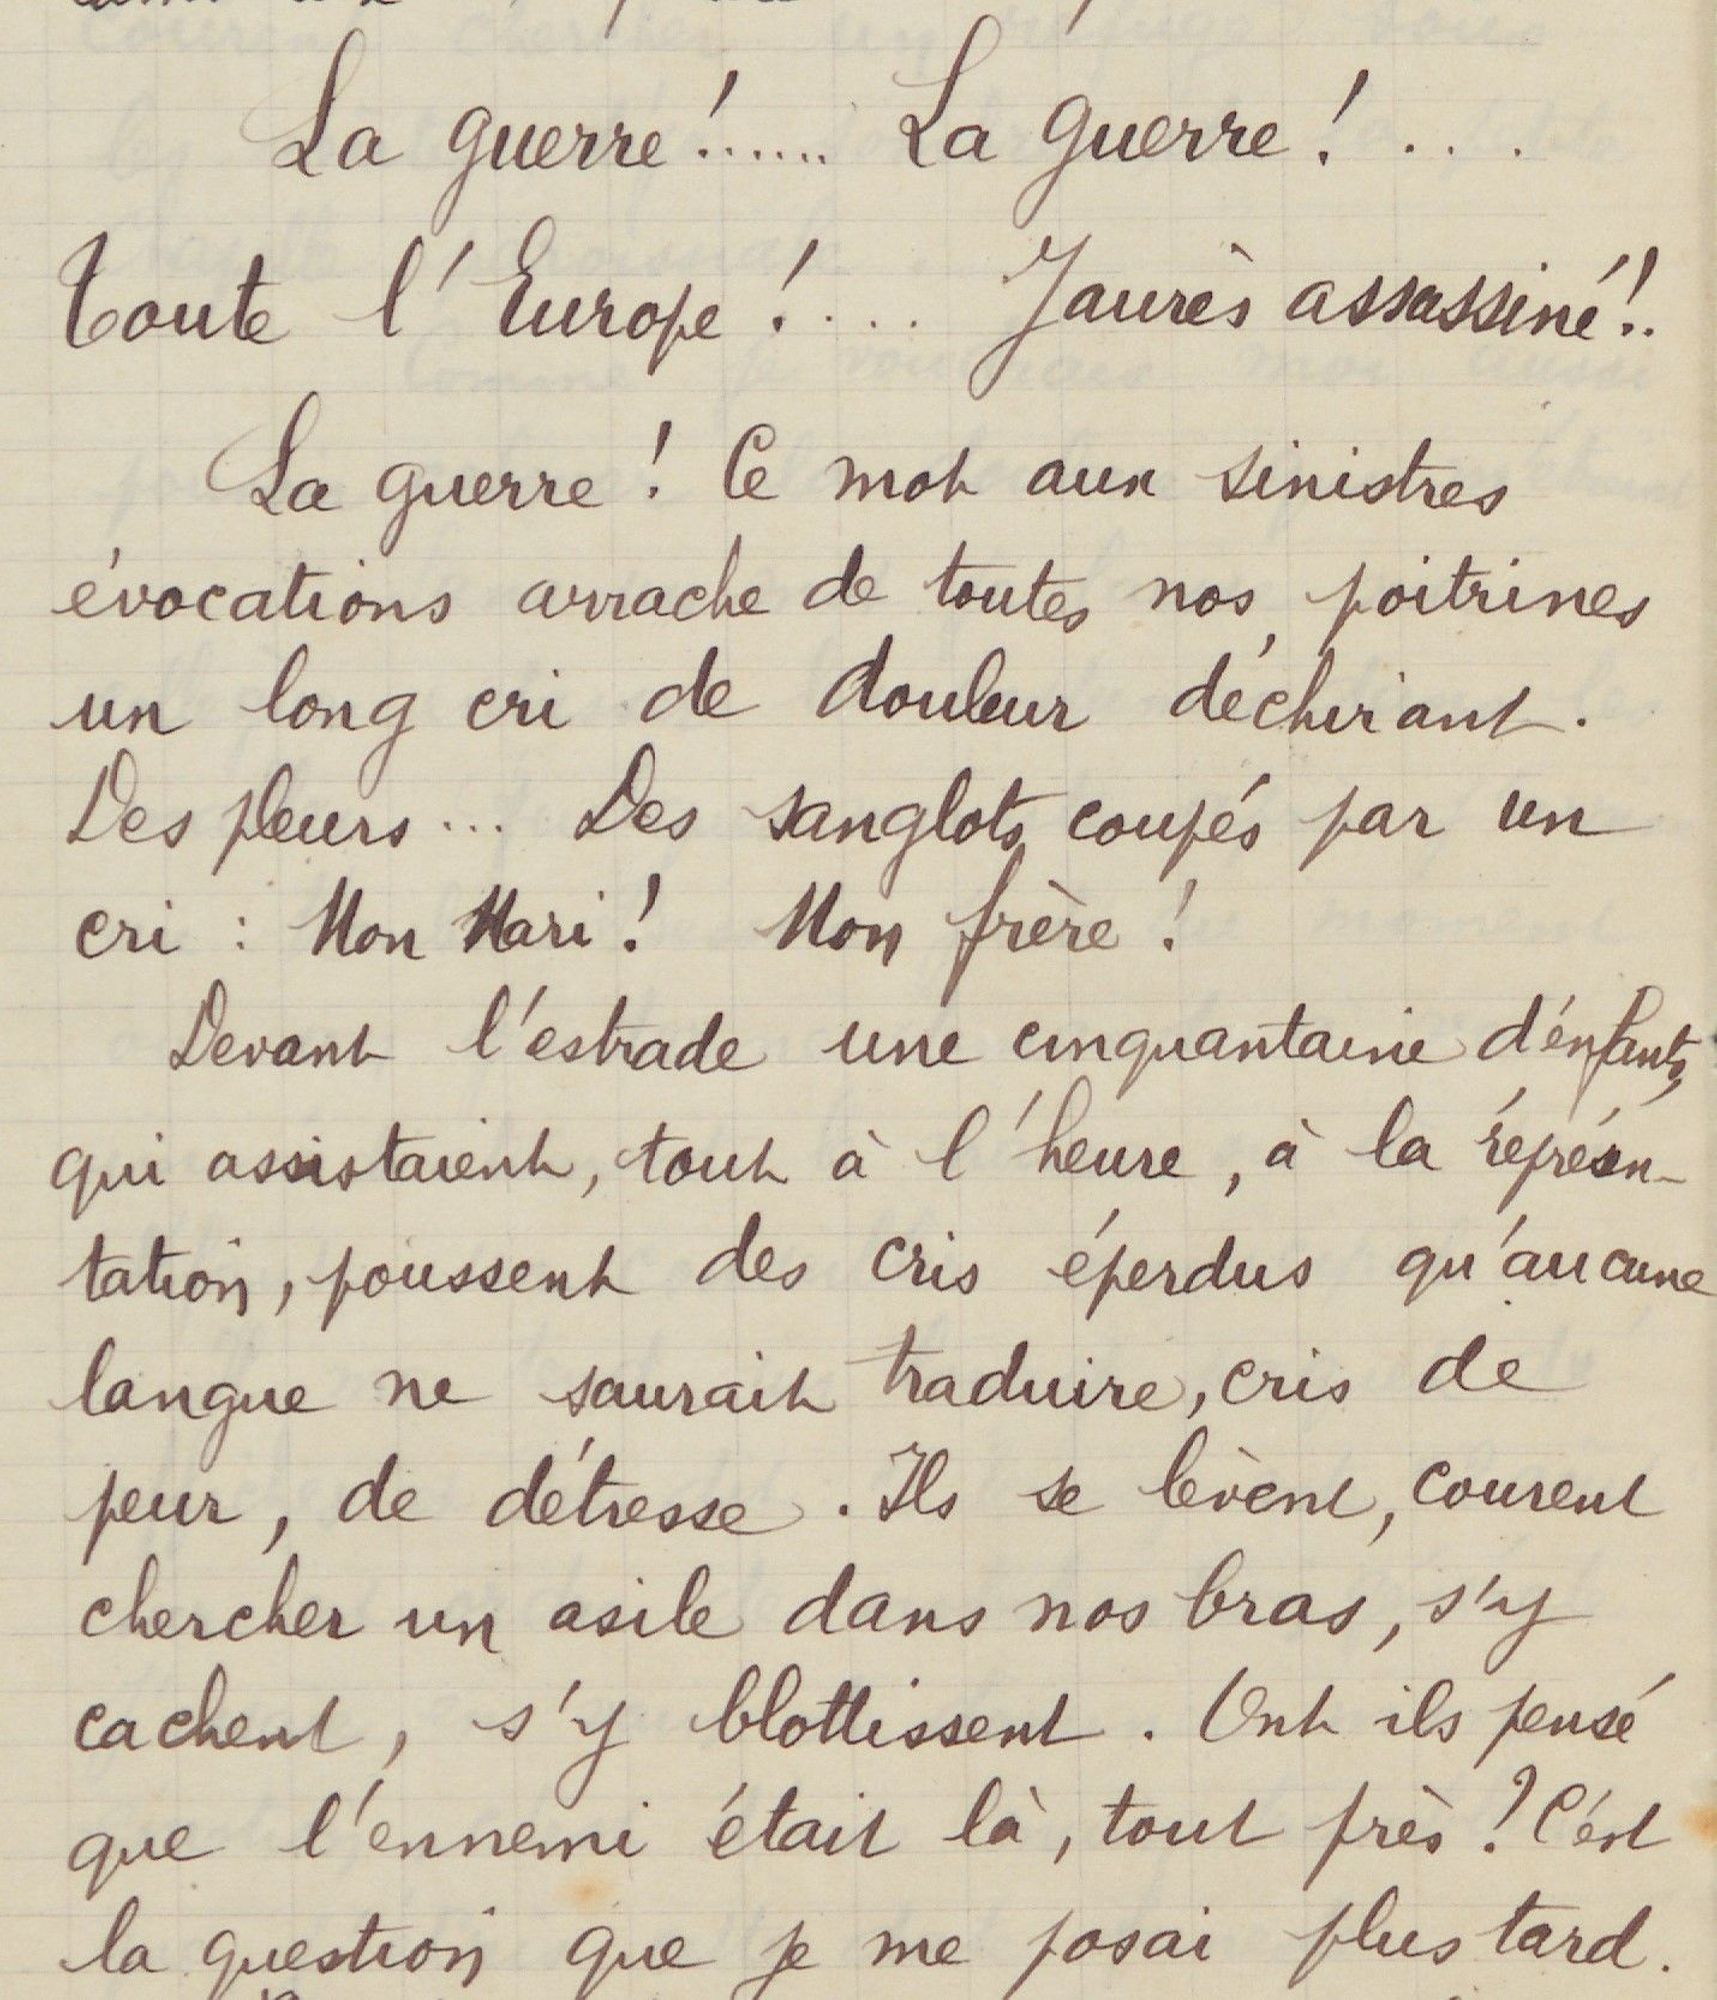 La guerre!...... La guerre! ...
Toute l'Europe!.... Jaurès assassiné!..
La guerre! Ce mot aux sinistres
évocations arrache de toutes nos poitrines
un long cri de douleur déchirant.
Des pleurs... Des sanglots coupés par un
cri : Mon Mari! Mon frère!
Devant l'estrade une cinquantaine d'enfants,
qui assistaient, tout à l'heure, à la représen-
tation, poussent des cris éperdus qu'aucune
langue ne saurait traduire, cris de
peur, de détresse. Ils se lèvent, courent
chercher un asile dans nos bras, s'y
cachent, s'y blottissent. Ont ils pensé
que l'ennemi était là, tout près? C'est
la question que je me posai plus tard.